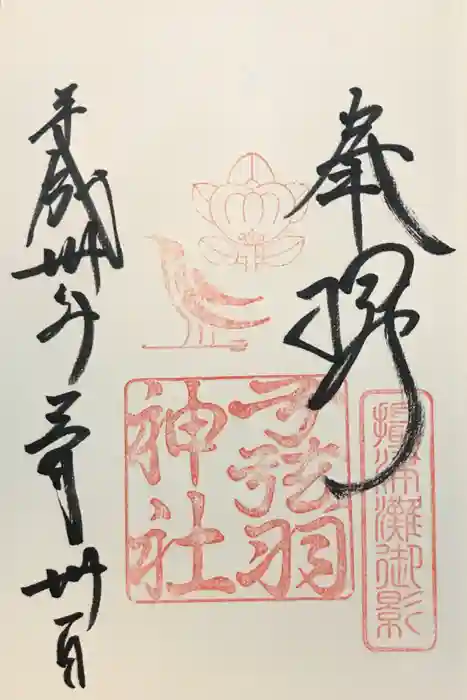 奉拝
攝津灘御影
弓弦羽
神社
平成卅年 月卅一日